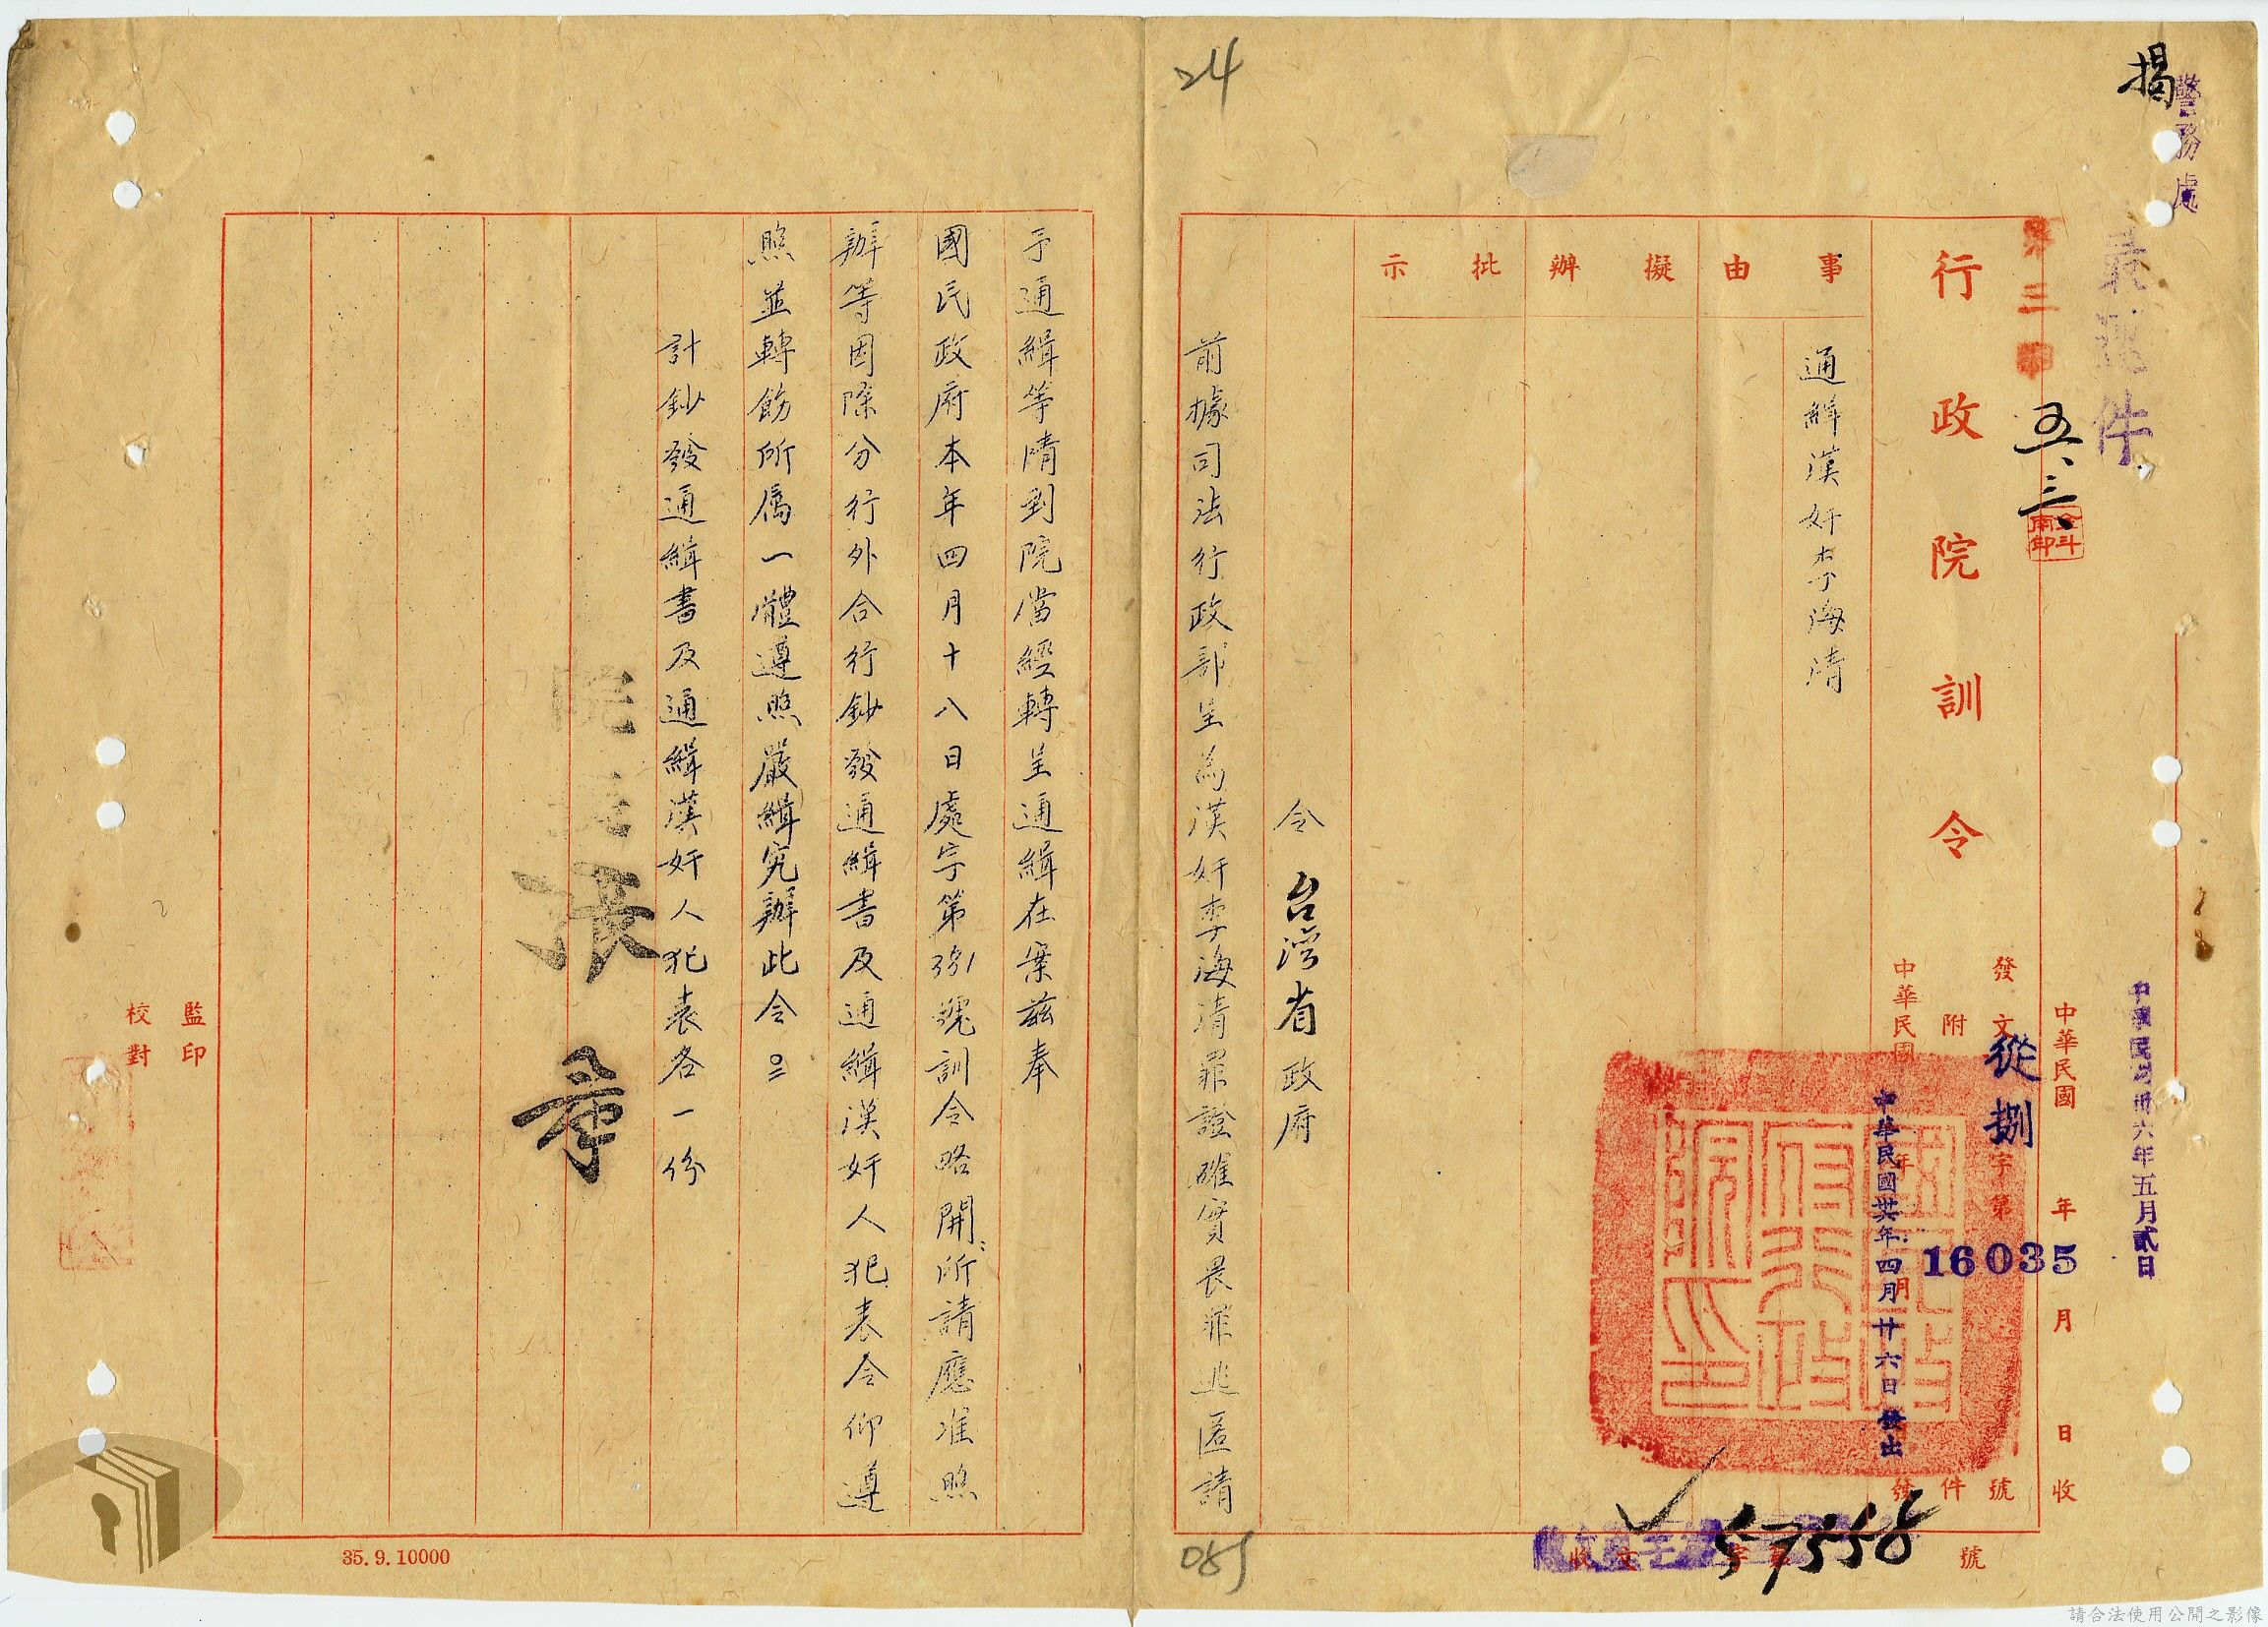 揭
警務處
最速件
中華民國卅六年五月貳日
中華民國 年 月 日收
第三
五、三
行政院訓令
發文從捌字第16035號
附 件
中華民國 年 月 發
中華民國卅六年四月廿六日發出
事由
通緝漢奸李海清
擬辦
批示
令 台灣省政府
前據司法行政部呈為漢奸李海清罪證確實畏罪逃匿請
收文 字第57558號
24
085
予通緝等情到院當經轉呈通緝在案茲奉
國民政府本年四月十八日處字第331號訓令略開:所請應准照
辦等因除分行外合行鈔發通緝書及通緝漢奸人犯表令仰遵
照並轉飭所屬一體遵照嚴緝究辦此令
計鈔發通緝書及通緝漢奸人犯表各一份
院長張羣
監印
校對
35.9.10000
請合法使用公開之影像